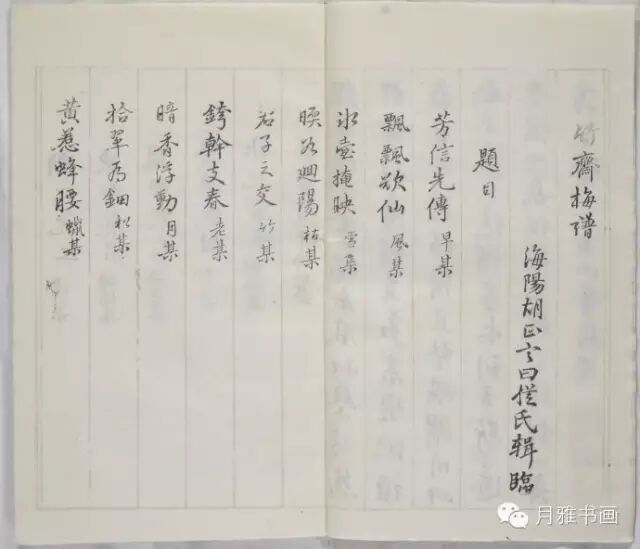 竹齋梅譜
海陽胡正言曰從氏輯臨
題目
芳信先傳 早某
飄飄欲仙 風某
冰壺掩映 雪某
廻陽 枯某
君子之交 竹某
幹支春 老某
暗香浮動 月某
拾翠為鈿 松某
黃惹蜂腰 蠟某
月雅书画